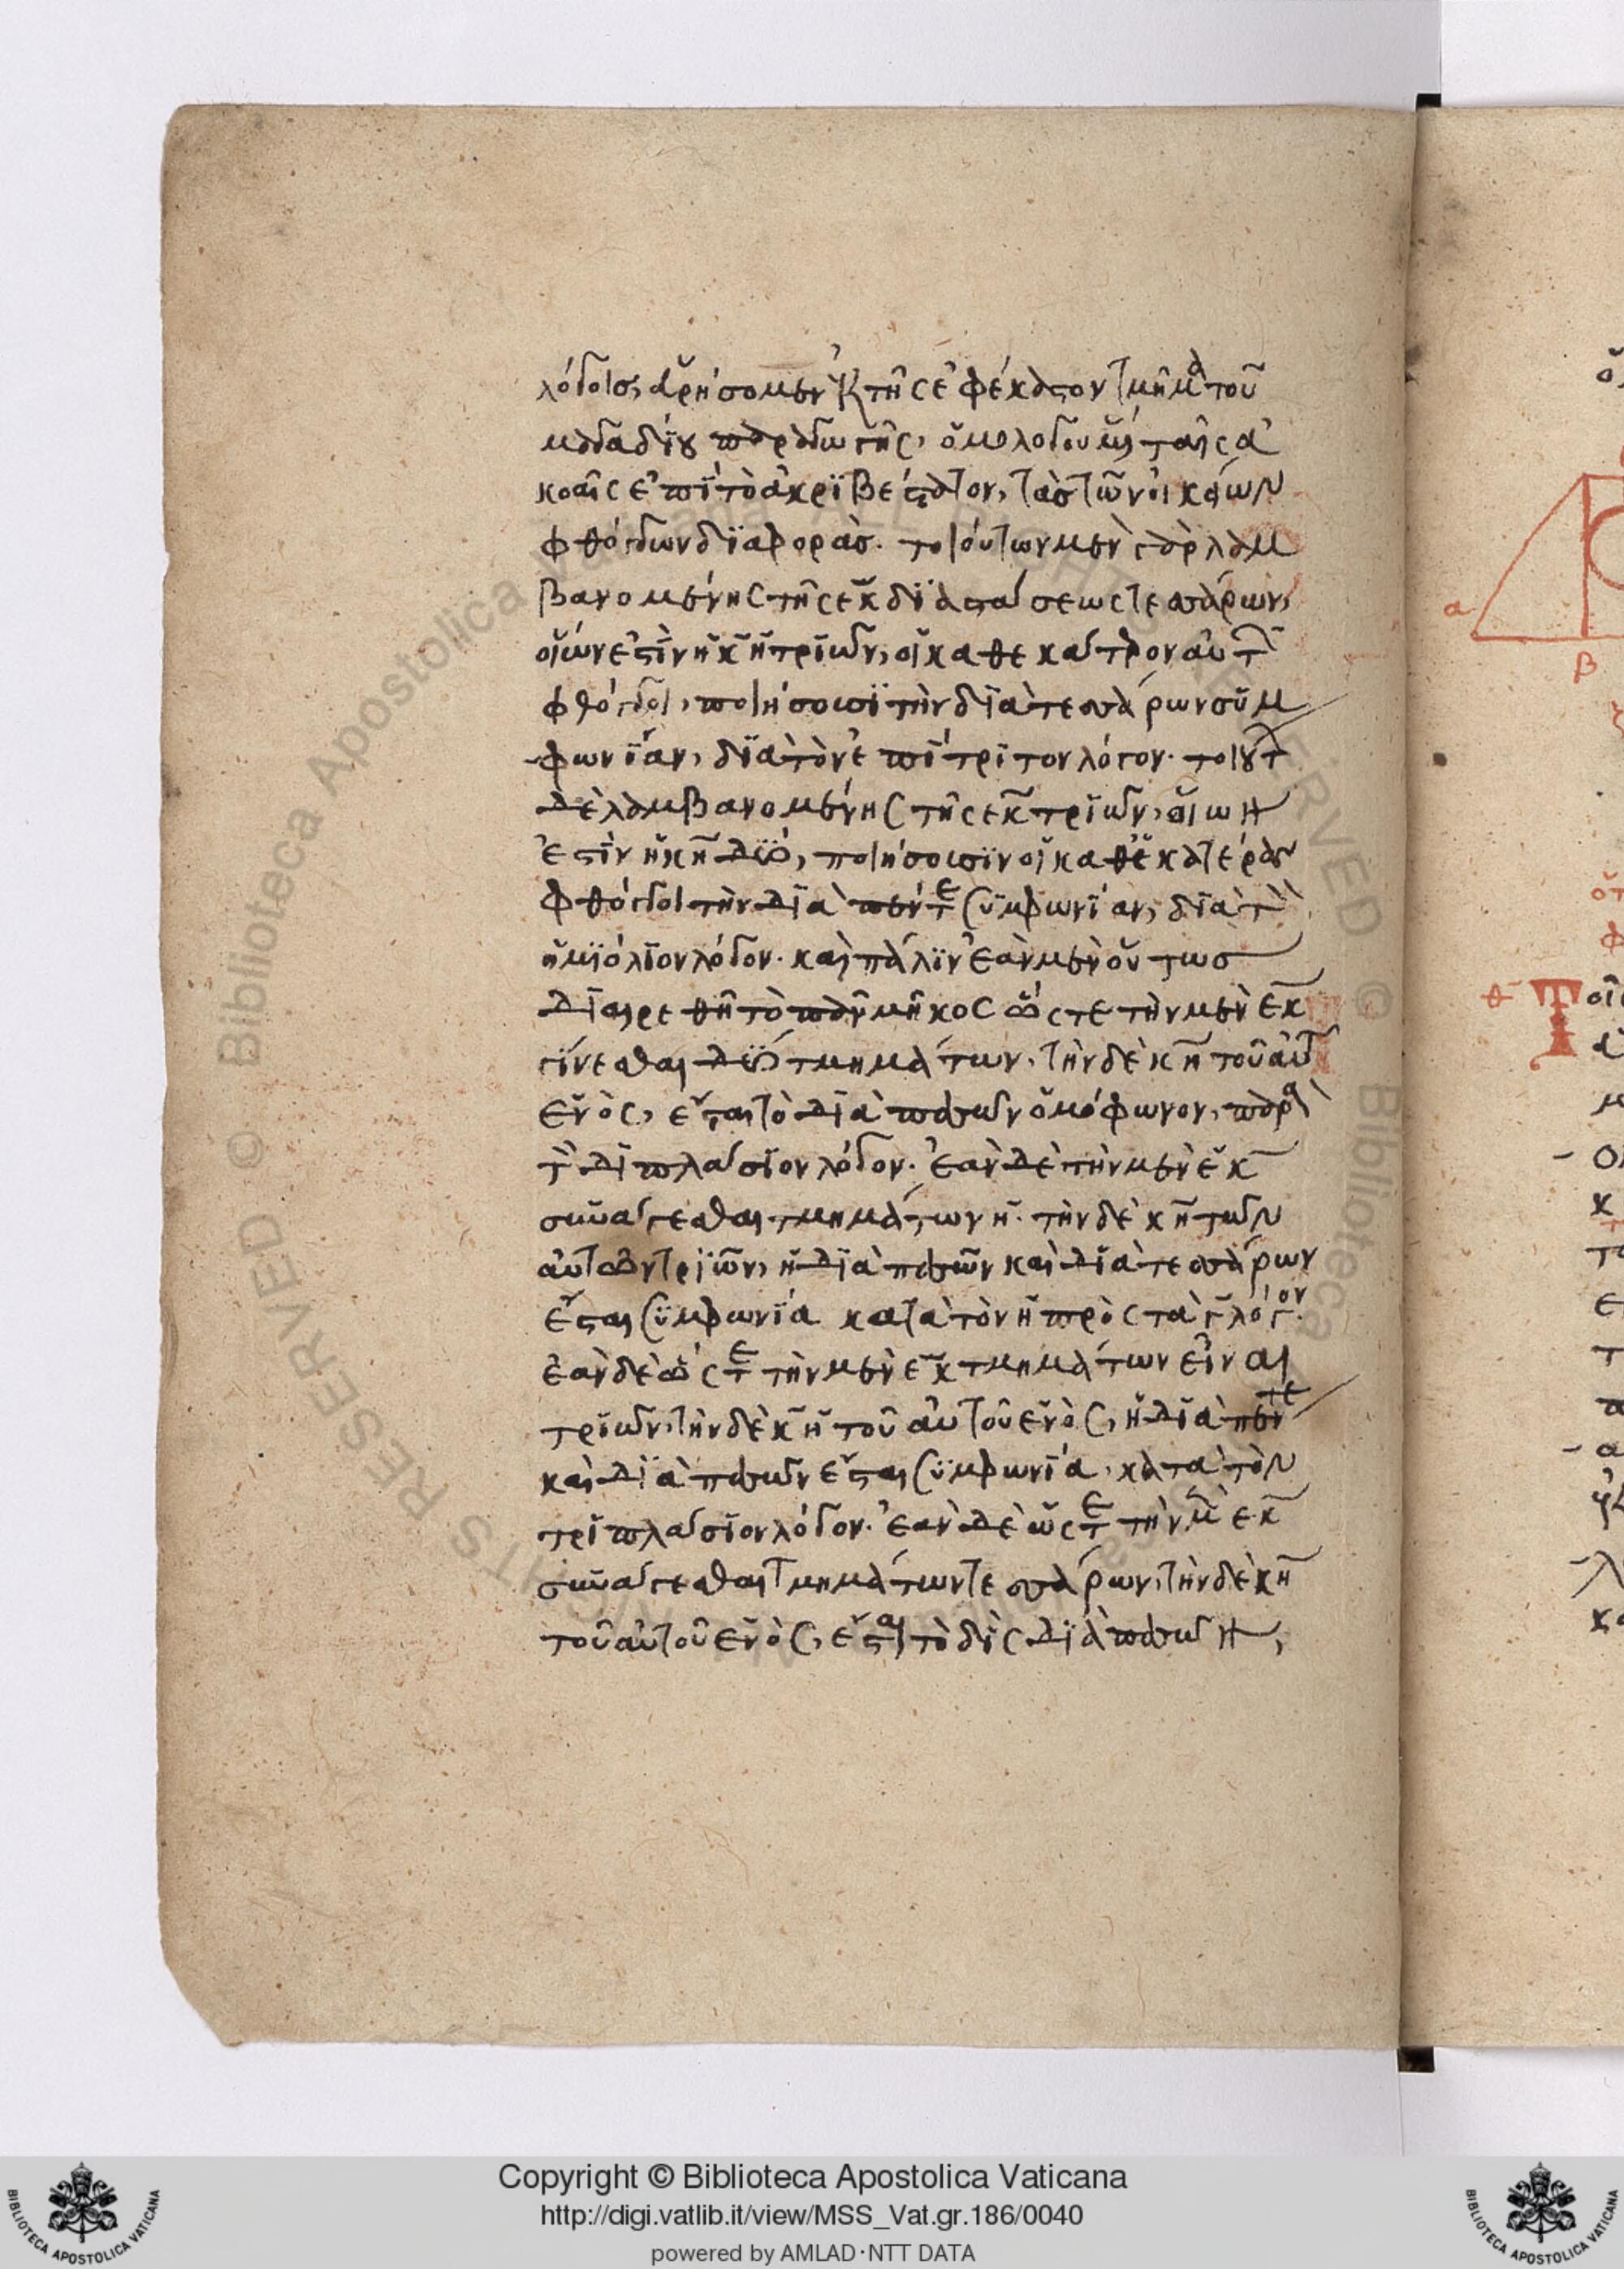 λόγοις, εὑρήσομεν ἐκ τῆς ἐφ' ἕκαστον τμῆμα τοῦ
μαγαδίου παραγωγῆς, ὁμολογουμένας ταῖς ἀ
κοαῖς ἐπὶ τὸ ἀκριβέστατον, τὰς τῶν οἰκείων
φθόγγων διαφοράς. τοιούτων μὲν γὰρ λαμ
βανομένης τῆς εκ διαστάσεως τεσσάρων,
οἵων ἐστὶν ἡ κη τριῶν, οἱ καθ' ἑκάτερον αὐτῶν
φθόγγοι, ποιήσουσι τὴν διὰ τεσσάρων συμ
φωνίαν, διὰ τὸν ἐπίτριτον λόγον. τοιούτων
δὲ λαμβανομένης τῆς εκ τριῶν, οἵων
ἐστὶν ἡ κη δύο, ποιήσουσιν οἱ καθ' ἑκατέραν
φθόγγοι τὴν διὰ πέντε συμφωνίαν, διὰ τὸν
ἡμιόλιον λόγον. καὶ πάλιν ἐὰν μὲν οὕτως
διαιρεθῇ τὸ πᾶν μῆκος ὥστε τὴν μὲν εκ
γίνεσθαι δύο τμημάτων, τὴν δὲ κη τοῦ αὐτοῦ
ἑνὸς, ἔσται τὸ διὰ πασῶν ὁμόφωνον, παρὰ
τὸν διπλάσιον λόγον. ἐὰν δὲ τὴν μὲν εκ
συνάγεσθαι τμημάτων η. τὴν δὲ κη τῶν
αὐτῶν τριῶν, ἡ διὰ πασῶν καὶ διὰ τεσσάρων
ἔσται συμφωνία κατὰ τὸν η πρὸς τὰ γ λόγον.
ἐὰν δὲ ὥστε τὴν μὲν εκ τμημάτων εἶναι
τριῶν, τὴν δὲ κη τοῦ αὐτοῦ ἑνὸς, ἡ διὰ πέντε
καὶ διὰ πασῶν ἔσται συμφωνία, κατὰ τὸν
τριπλάσιον λόγον. ἐὰν δὲ ὥστε τὴν μὲν εκ
συνάγεσθαι τμημάτων τεσσάρων, τὴν δὲ κη
τοῦ αὐτοῦ ἑνὸς, ἔσται τὸ δὶς διὰ πασῶν,
α
β
θ
Copyright © Biblioteca Apostolica Vaticana
http://digi.vatlib.it/view/MSS_Vat.gr.186/0040
powered by AMLAD·NTT DATA